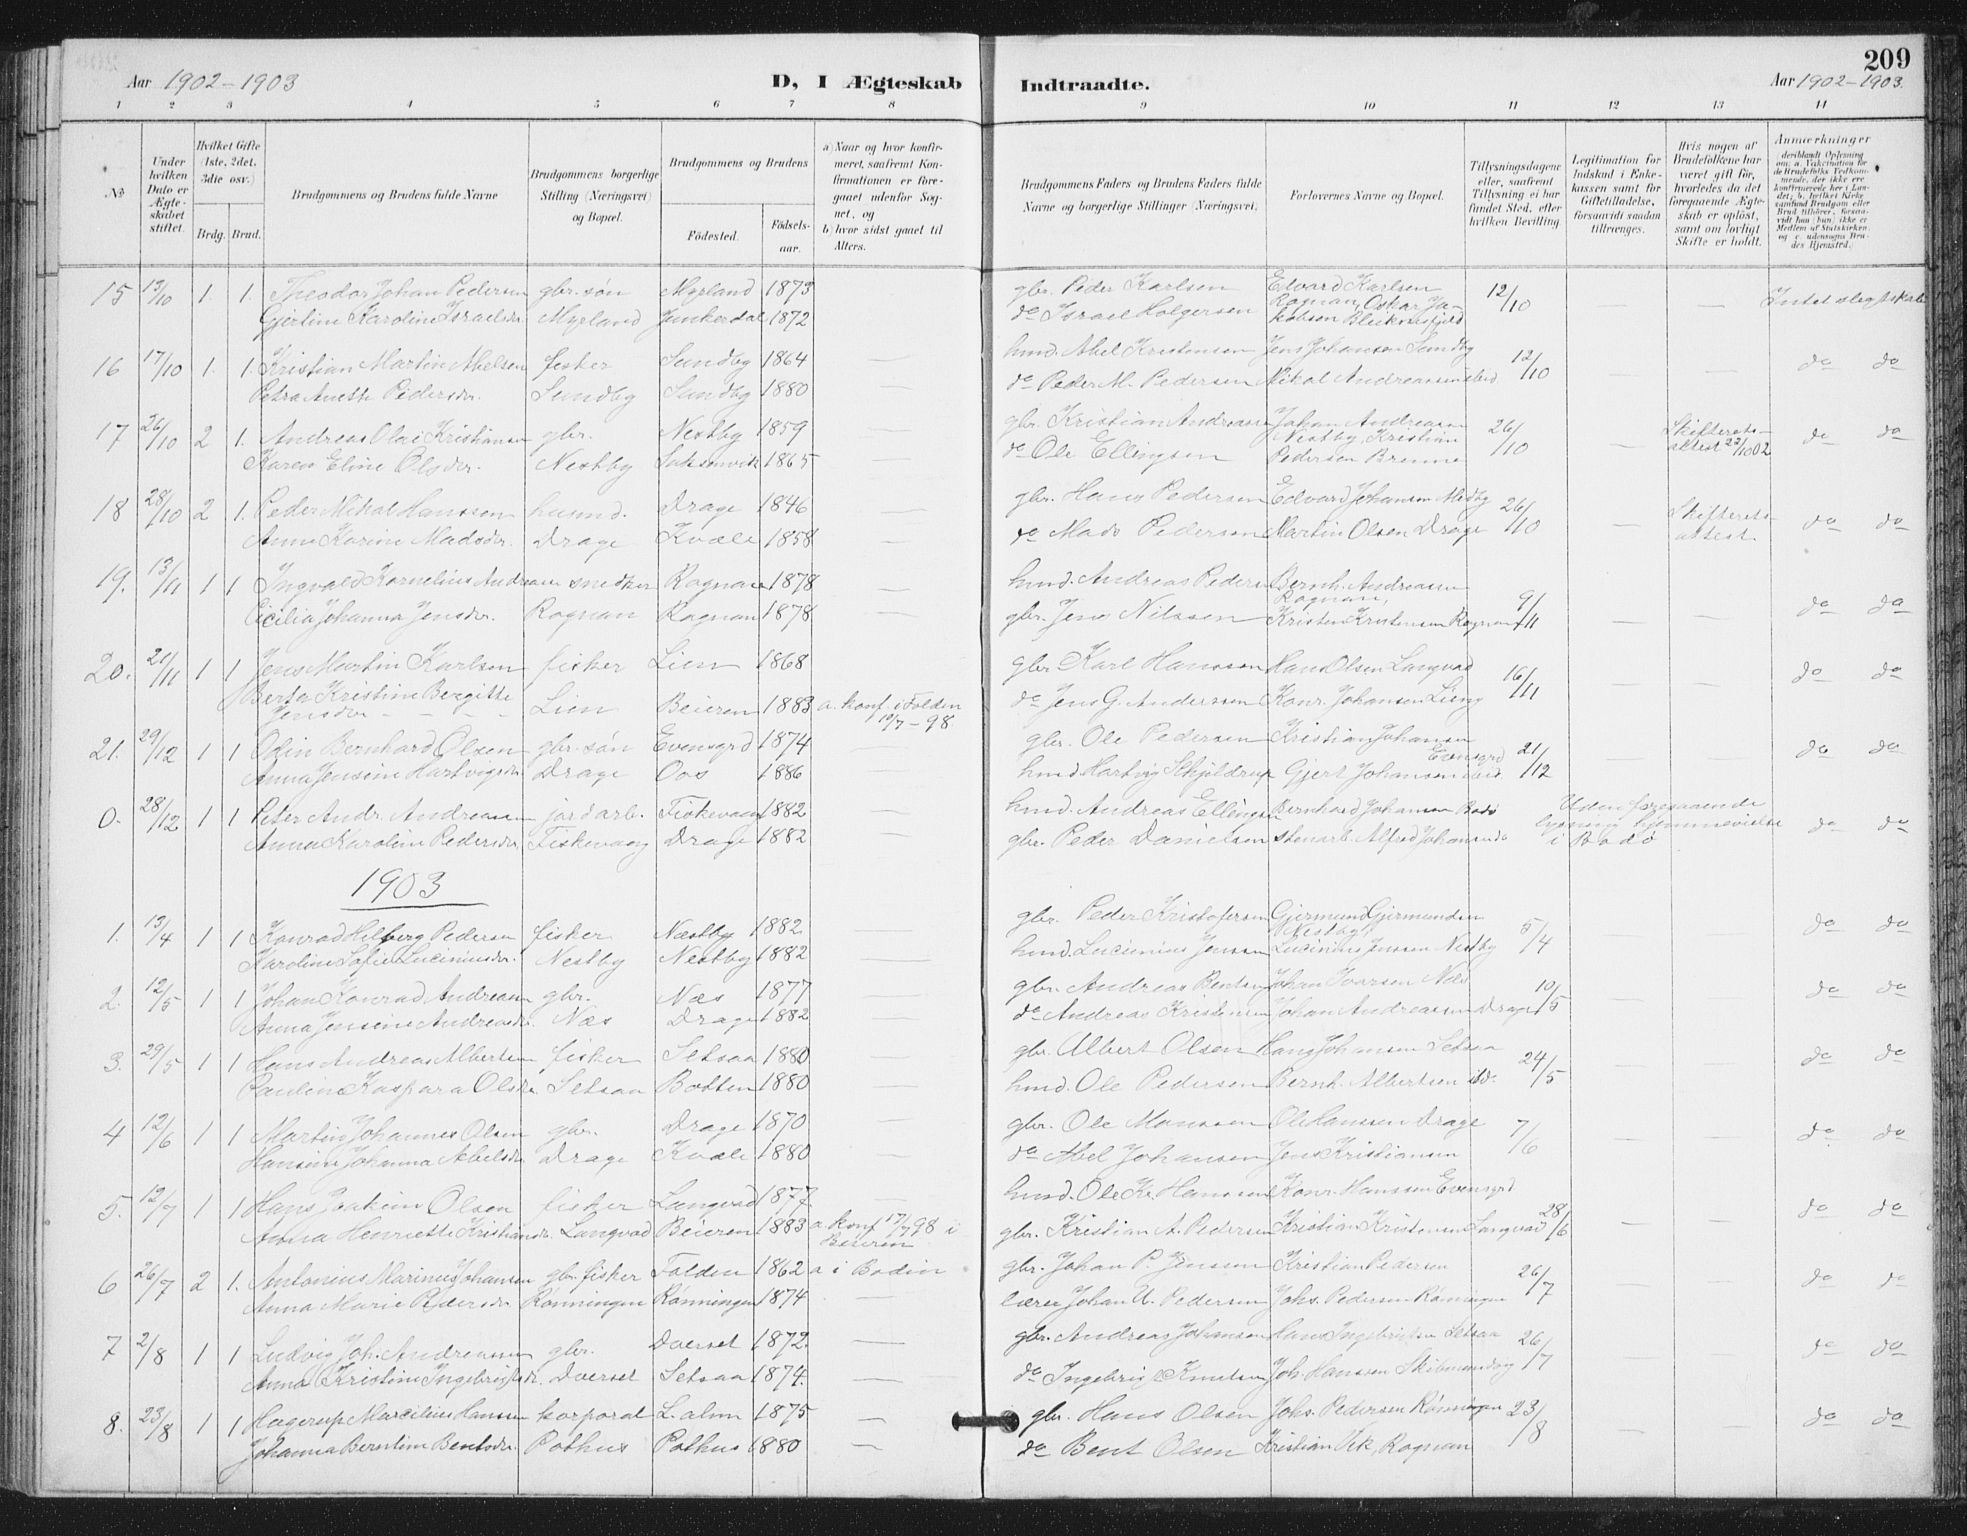 209
Aar 1902-1903
D, I Ægteskab
Indtraadte.
Aar 1902-1903.
1 2 3 4 5 6 7 8 9 10 11 12 13 14
№
Under hvilken Dato er Ægteskabet stiftet.
Hvilket Gifte (1ste, 2det, 3die osv.)
Brdg. Brud.
Brudgommens og Brudens fulde Navne
Brudgommens borgerlige Stilling (Næringsvei) og Bopæl.
Brudgommens og Brudens
Fødested. Fødselsaar.
a) Naar og hvor konfirmeret, saafremt Konfirmationen er foregaaet udenfor Sognet, og
b) hvor sidst gaaet til Alters.
Brudgommens Faders og Brudens Faders fulde Navne og borgerlige Stillinger (Næringsvei)
Forlovernes Navne og Bopæl.
Tillysningsdagene eller, saafremt Tillysning ei har fundet Sted, efter hvilken Bevilling.
Legitimation for Indskud i Enkekassen samt for Giftetilladelse, forsaavidt saadan tiltrænges.
Hvis nogen af Brudefolkene har været gift før, hvorledes da det foregaaende Ægteskab er opløst, samt om lovligt Skifte er holdt.
Anmærkninger
15 13/10 1. 1. Theodor Johan Pedersen gbr. søn Myrland 1873 gbr. Peder Karlsen Edvard Karlsen Rognan, Oskar Jakobsen 12/10
Gjertine Karoline Israelsdr. Myrland Junkerdal 1872 do Israel Holgersen
16 17/10 1. 1. Kristian Martin Abelsen fisker Sundby 1864 — husm. Abel Kristensen Jens Johansen Sundby 12/10 — — do do
Petra Anette Pedersdr. Sundby Sundby 1880 — do Peder M. Pedersen Nikol Andreassen
17 26/10 2 1. Andreas Olai Kristiansen gbr. Nestby 1859 — gbr. Kristian Andreassen Johan Andreassen Nestby, Kristian 26/10 — Skifteretsattest 22/10 02 do do
Karen Eline Olsdr. Nestby Saksenvik 1865 — do Ole Ellingsen Pedersen Brenne
18 28/10 2 1. Peder Mikal Hanssen husmd. Drage 1846 — gbr. Hans Pedersen Edvard Johansen Medby 26/10 — Skifteretsattest do do
Anne Karine Madsdr. Drage Kvæle 1858 — do Mads Pedersen Martin Olsen Drage
19. 13/11 1 1 Ingvald Kornelius Andreasen snedker Rognan 1878 — husm. Andreas Pedersen Bernh. Andreassen Rognan, 9/11 — — do do
Cicilia Johanna Jensdr. Rognan Rognan 1878 — gbr. Jens Nilssen Kristen Kristensen Rognan
20. 21/11 1 1 Jens Martin Karlsen fisker Lien 1868 gbr Karl Hanssen Hans Olsen Langvad 16/11 — — do do
Berta Kristine Bergitte Jensdr. Lien Beieren 1883 a. konf. i Folden 10/7-98. do Jens G. Anderssen Konr. Johansen Lieng
21. 29/12 1 1 Odin Bernhard Olsen gbr. søn Evensgrd 1874 — gbr. Ole Pedersen Kristian Johansen Evensgrd 21/12 — — do do
Anna Jensine Hartvigsdr. Drage Oos 1886 — husm Hartvig Schjeldrup Gjert Johansen
0. 28/12 1 1 Peter Andr. Andreassen jordarb. Fiskevaag 1882 — husm. Andreas Ellingsen Bernhard Johansen Bodø Uden foregaaende lysning hjemmevielse i Bodø do do
Anna Karoline Pedersdr. Fiskevaag Drage 1882 — gbr. Peder Danielsen stenarb. Alfred Johansen do
1903
1. 13/4 1 1 Konrad Helberg Pedersen fisker Nestby 1882 — gbr. Peder Kristofersen Gjermund Gjermundsen Nestby 5/4 — — do do
Karoline Sofie Luciniusdr. Nestby Nestby 1882 — husm. Lucinius Jenssen Lucinius Jenssen Nestby
2. 12/5 1 1 Johan Konrad Andreassen gbr. Næs 1877 — gbr. Andreas Bentsen Johan Ivarsen Næs 10/5 — — do do
Anna Jensine Andreasdr. Næs Drage 1882 — do Andreas Kristensen Johan Andreassen Drage
3. 29/5 1 1 Hans Andreas Albertsen fisker Setsaa 1880 — gbr. Albert Olsen Hans Johansen Setsaa 24/5 — — do do
Pauline Kaspara Olsdr. Setsaa Botten 1880 — husm. Ole Pedersen Bernh. Albertsen ibd.
4 12/6 1 1 Martin Johannes Olsen gbr. Drage 1870 — gbr. Ole Monssen Ole Hanssen Drage 7/6 — — do do
Hansine Johanna Abelsdr. Drage Kvæle 1880 — do Abel Johansen Jens Kristiansen
5. 12/7 1 1 Hans Joakim Olsen fisker Langvad 1877. — husm. Ole Kr. Hanssen Konr. Hanssen Evensgrd 28/6 — — do do
Anna Henriette Kristiansdr. Langvad Beieren 1883 a. konf 17/7 98 i Beieren gbr. Kristian A. Pedersen Kristian Kristensen Langvad
6 26/7 2 1. Antonius Marinus Johansen gbr. fisker Folden 1862 a i Bodin gbr. Johan P. Jenssen Kristian Pedersen 26/7 — — do do
Anna Marie Pedersdr. Rønningen Rønningen 1874 — lærer Johan U. Pedersen Johs. Pedersen Rønningen
7 2/8 1 1 Ludvig Joh. Andreassen gbr. Dverset 1872. — gbr. Andreas Johansen Hans Ingebrigtsen Setsaa 26/7 — — do do
Anna Kristine Ingebrigtsdr. Dverset Setsaa 1874. — do Ingebrigt Knutsen Joh. Hanssen
8. 23/8 1 1 Hagerup Marcelius Hanssen korporal L. alm 1875 — gbr. Hans Olsen Johs. Pedersen Rønningen 23/8 — — do do
Johanna Berntine Bentsdr. Pothus Pothus 1880 — do Bent Olsen Kristian Vik, Rognan